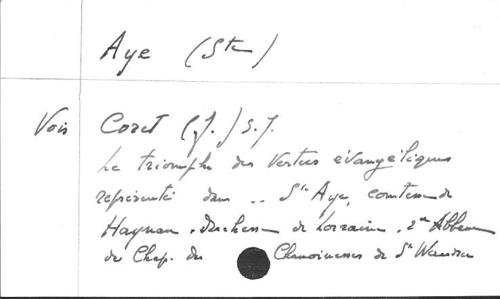 Aye (Ste)
Vois Coret (J.) S.J.
Le triomphe des Vertus évangéliques
représenté dans .. Ste Aye, comtesse de
Haynau. Duchesse de Lorraine. 2me Abbesse
du Chap. des Chanoinesses de Ste Waudru